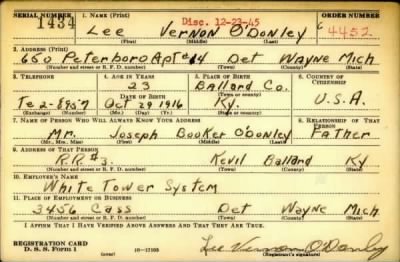 SERIAL NUMBER 1. NAME (Print) Disc. 12-23-45 ORDER NUMBER
1434 Lee Vernon O'Donley 4452
(First) (Middle) (Last)
2. ADDRESS (Print)
650 Peterboro Apt #14 Det Wayne Mich
(Number and street or R. F. D. number) (Town) (County) (State)
3. TELEPHONE 4. AGE IN YEARS 5. PLACE OF BIRTH 6. COUNTRY OF CITIZENSHIP
23 Ballard Co.
DATE OF BIRTH (Town or county)
Te 2-8957 Oct 29 1916 Ky. U.S.A.
(Exchange) (Number) (Mo.) (Day) (Yr.) (State or country)
7. NAME OF PERSON WHO WILL ALWAYS KNOW YOUR ADDRESS 8. RELATIONSHIP OF THAT PERSON
Mr. Joseph Booker O'Donley Father
(Mr., Mrs., Miss) (First) (Middle) (Last)
9. ADDRESS OF THAT PERSON
R.R. #3. Kevil Ballard Ky
(Number and street or R. F. D. number) (Town) (County) (State)
10. EMPLOYER'S NAME
White Tower System
11. PLACE OF EMPLOYMENT OR BUSINESS
3456 Cass Det Wayne Mich
(Number and street or R. F. D. number) (Town) (County) (State)
I AFFIRM THAT I HAVE VERIFIED ABOVE ANSWERS AND THAT THEY ARE TRUE.
REGISTRATION CARD
D. S. S. Form 1 16-17105 Lee Vernon O'Donley
(Registrant's signature)